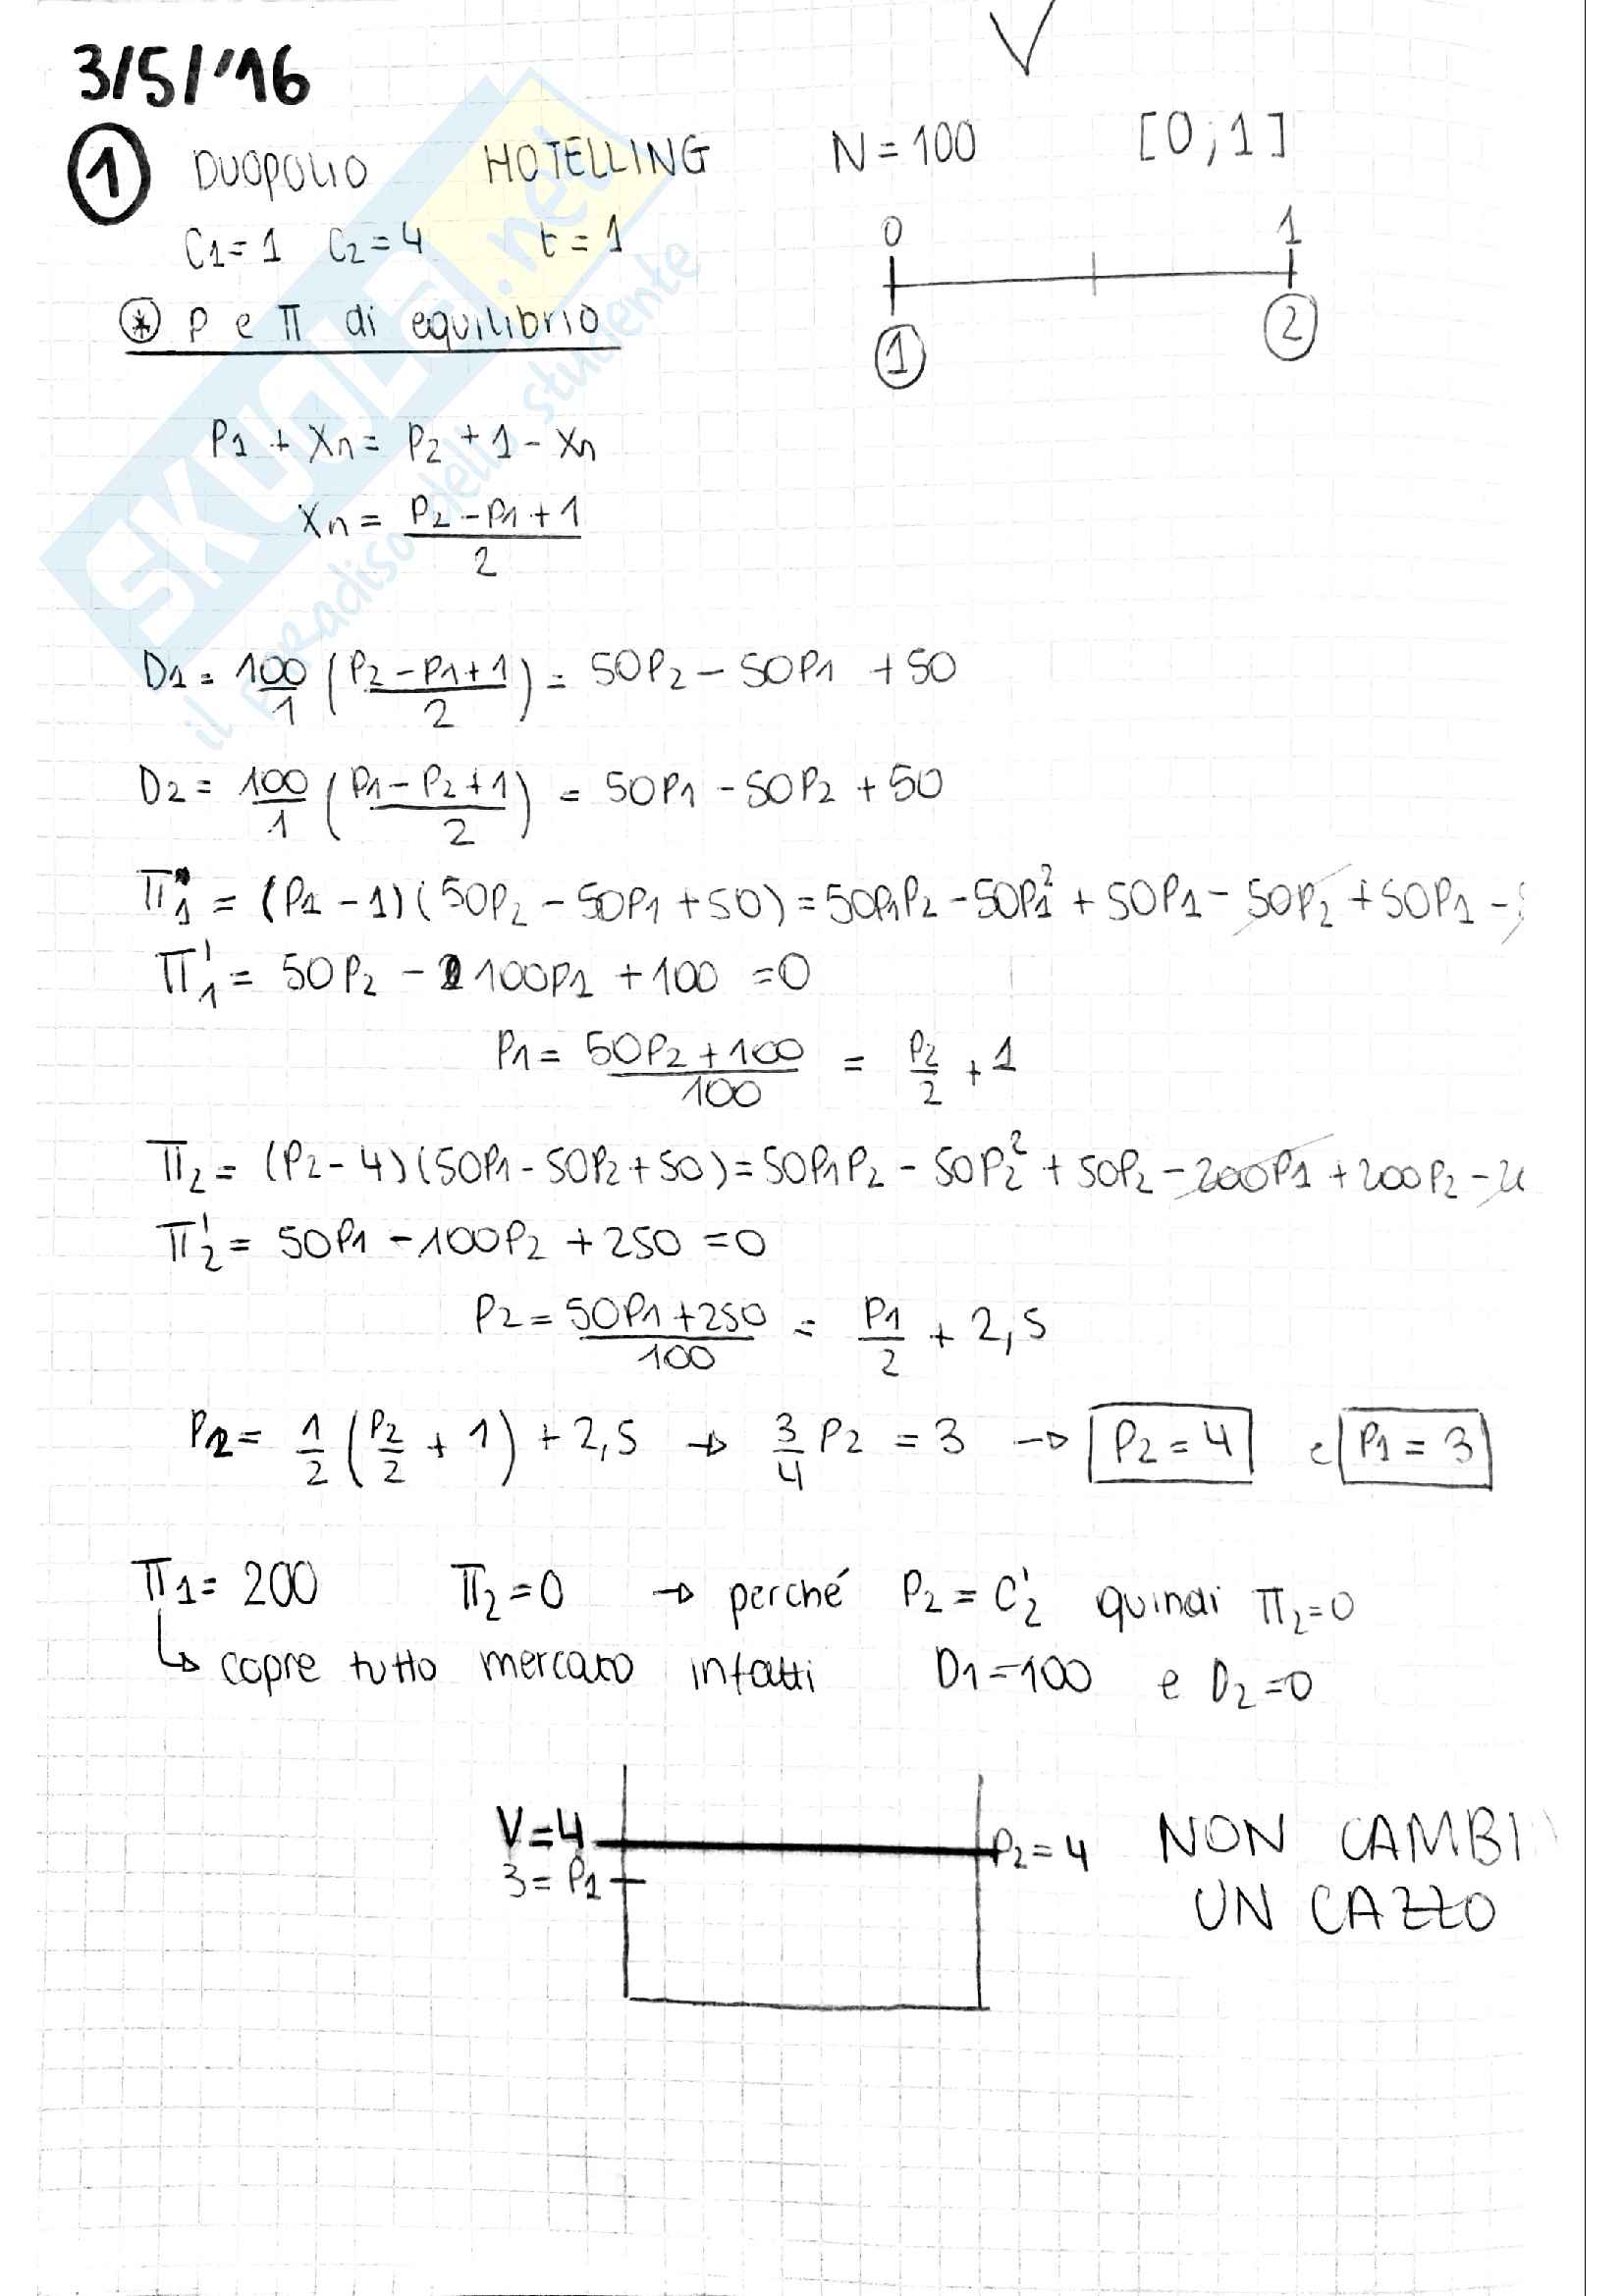 3/5/'16
1 DUOPOLIO HOTELLING N = 100 [0;1]
C1 = 1 C2 = 4 t = 1
0 1
1 2
* P e π di equilibrio
P1 + Xn = P2 + 1 - Xn
Xn = (P2 - P1 + 1)/2
D1 = 100/1 (P2 - P1 + 1 / 2) = 50P2 - 50P1 + 50
D2 = 100/1 (P1 - P2 + 1 / 2) = 50P1 - 50P2 + 50
π1 = (P1 - 1)(50P2 - 50P1 + 50) = 50P1P2 - 50P1² + 50P1 - 50P2 + 50P1 -
π1' = 50P2 - 100P1 + 100 = 0
P1 = (50P2 + 100)/100 = P2/2 + 1
π2 = (P2 - 4)(50P1 - 50P2 + 50) = 50P1P2 - 50P2² + 50P2 - 200P1 + 200P2 - 
π2' = 50P1 - 100P2 + 250 = 0
P2 = (50P1 + 250)/100 = P1/2 + 2,5
P2 = 1/2 (P2/2 + 1) + 2,5 → 3/4 P2 = 3 → P2 = 4 e P1 = 3
π1 = 200 π2 = 0 → perché P2 = C2' quindi π2 = 0
↳ copre tutto mercato infatti D1 = 100 e D2 = 0
V = 4 P2 = 4 NON CAMBI
3 = P1 UN CAZZO
SKUOLA.net
il paradiso dello studente